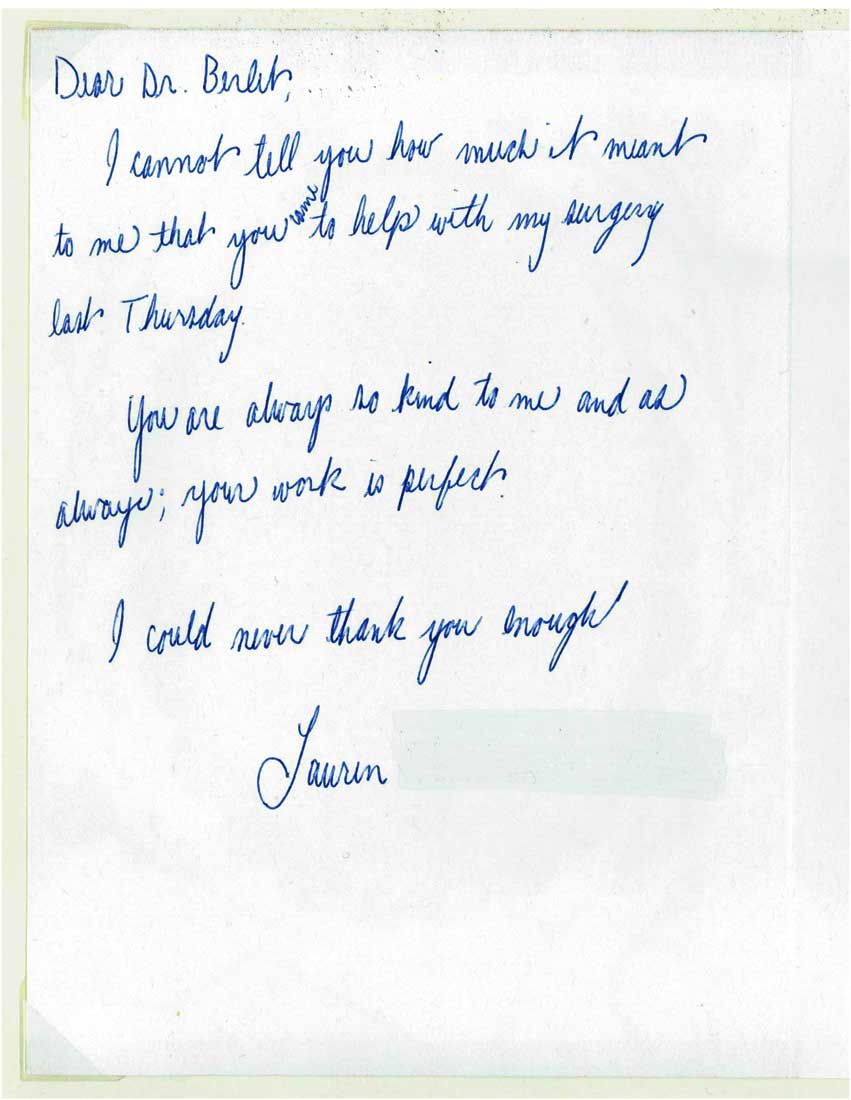 Dear Dr. Berlet,
I cannot tell you how much it meant
to me that you came to help with my surgery
last Thursday.
You are always so kind to me and as
always; your work is perfect.
I could never thank you enough!
Lauren